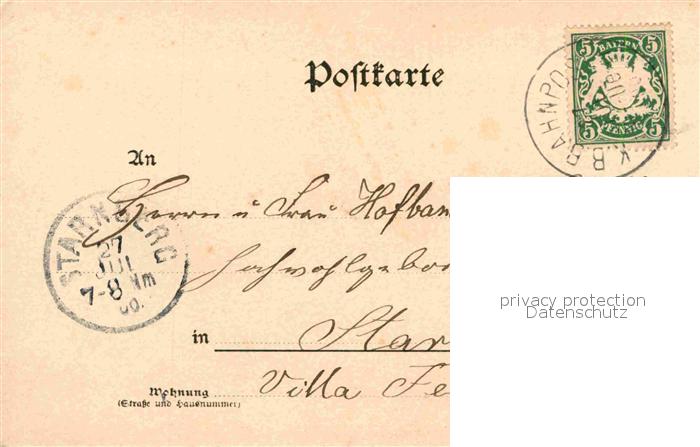 Postkarte
5 BAYERN 5
5 PFENNIG 5
K.B. BAHNPOST
An
Herrn u Frau Hofbau
STARNBERG
27
JUL
7-8 Nm
00.
Hochwohlgebor
in Star
Villa Fe
Wohnung
(Straße und Hausnummer)
privacy protection
Datenschutz